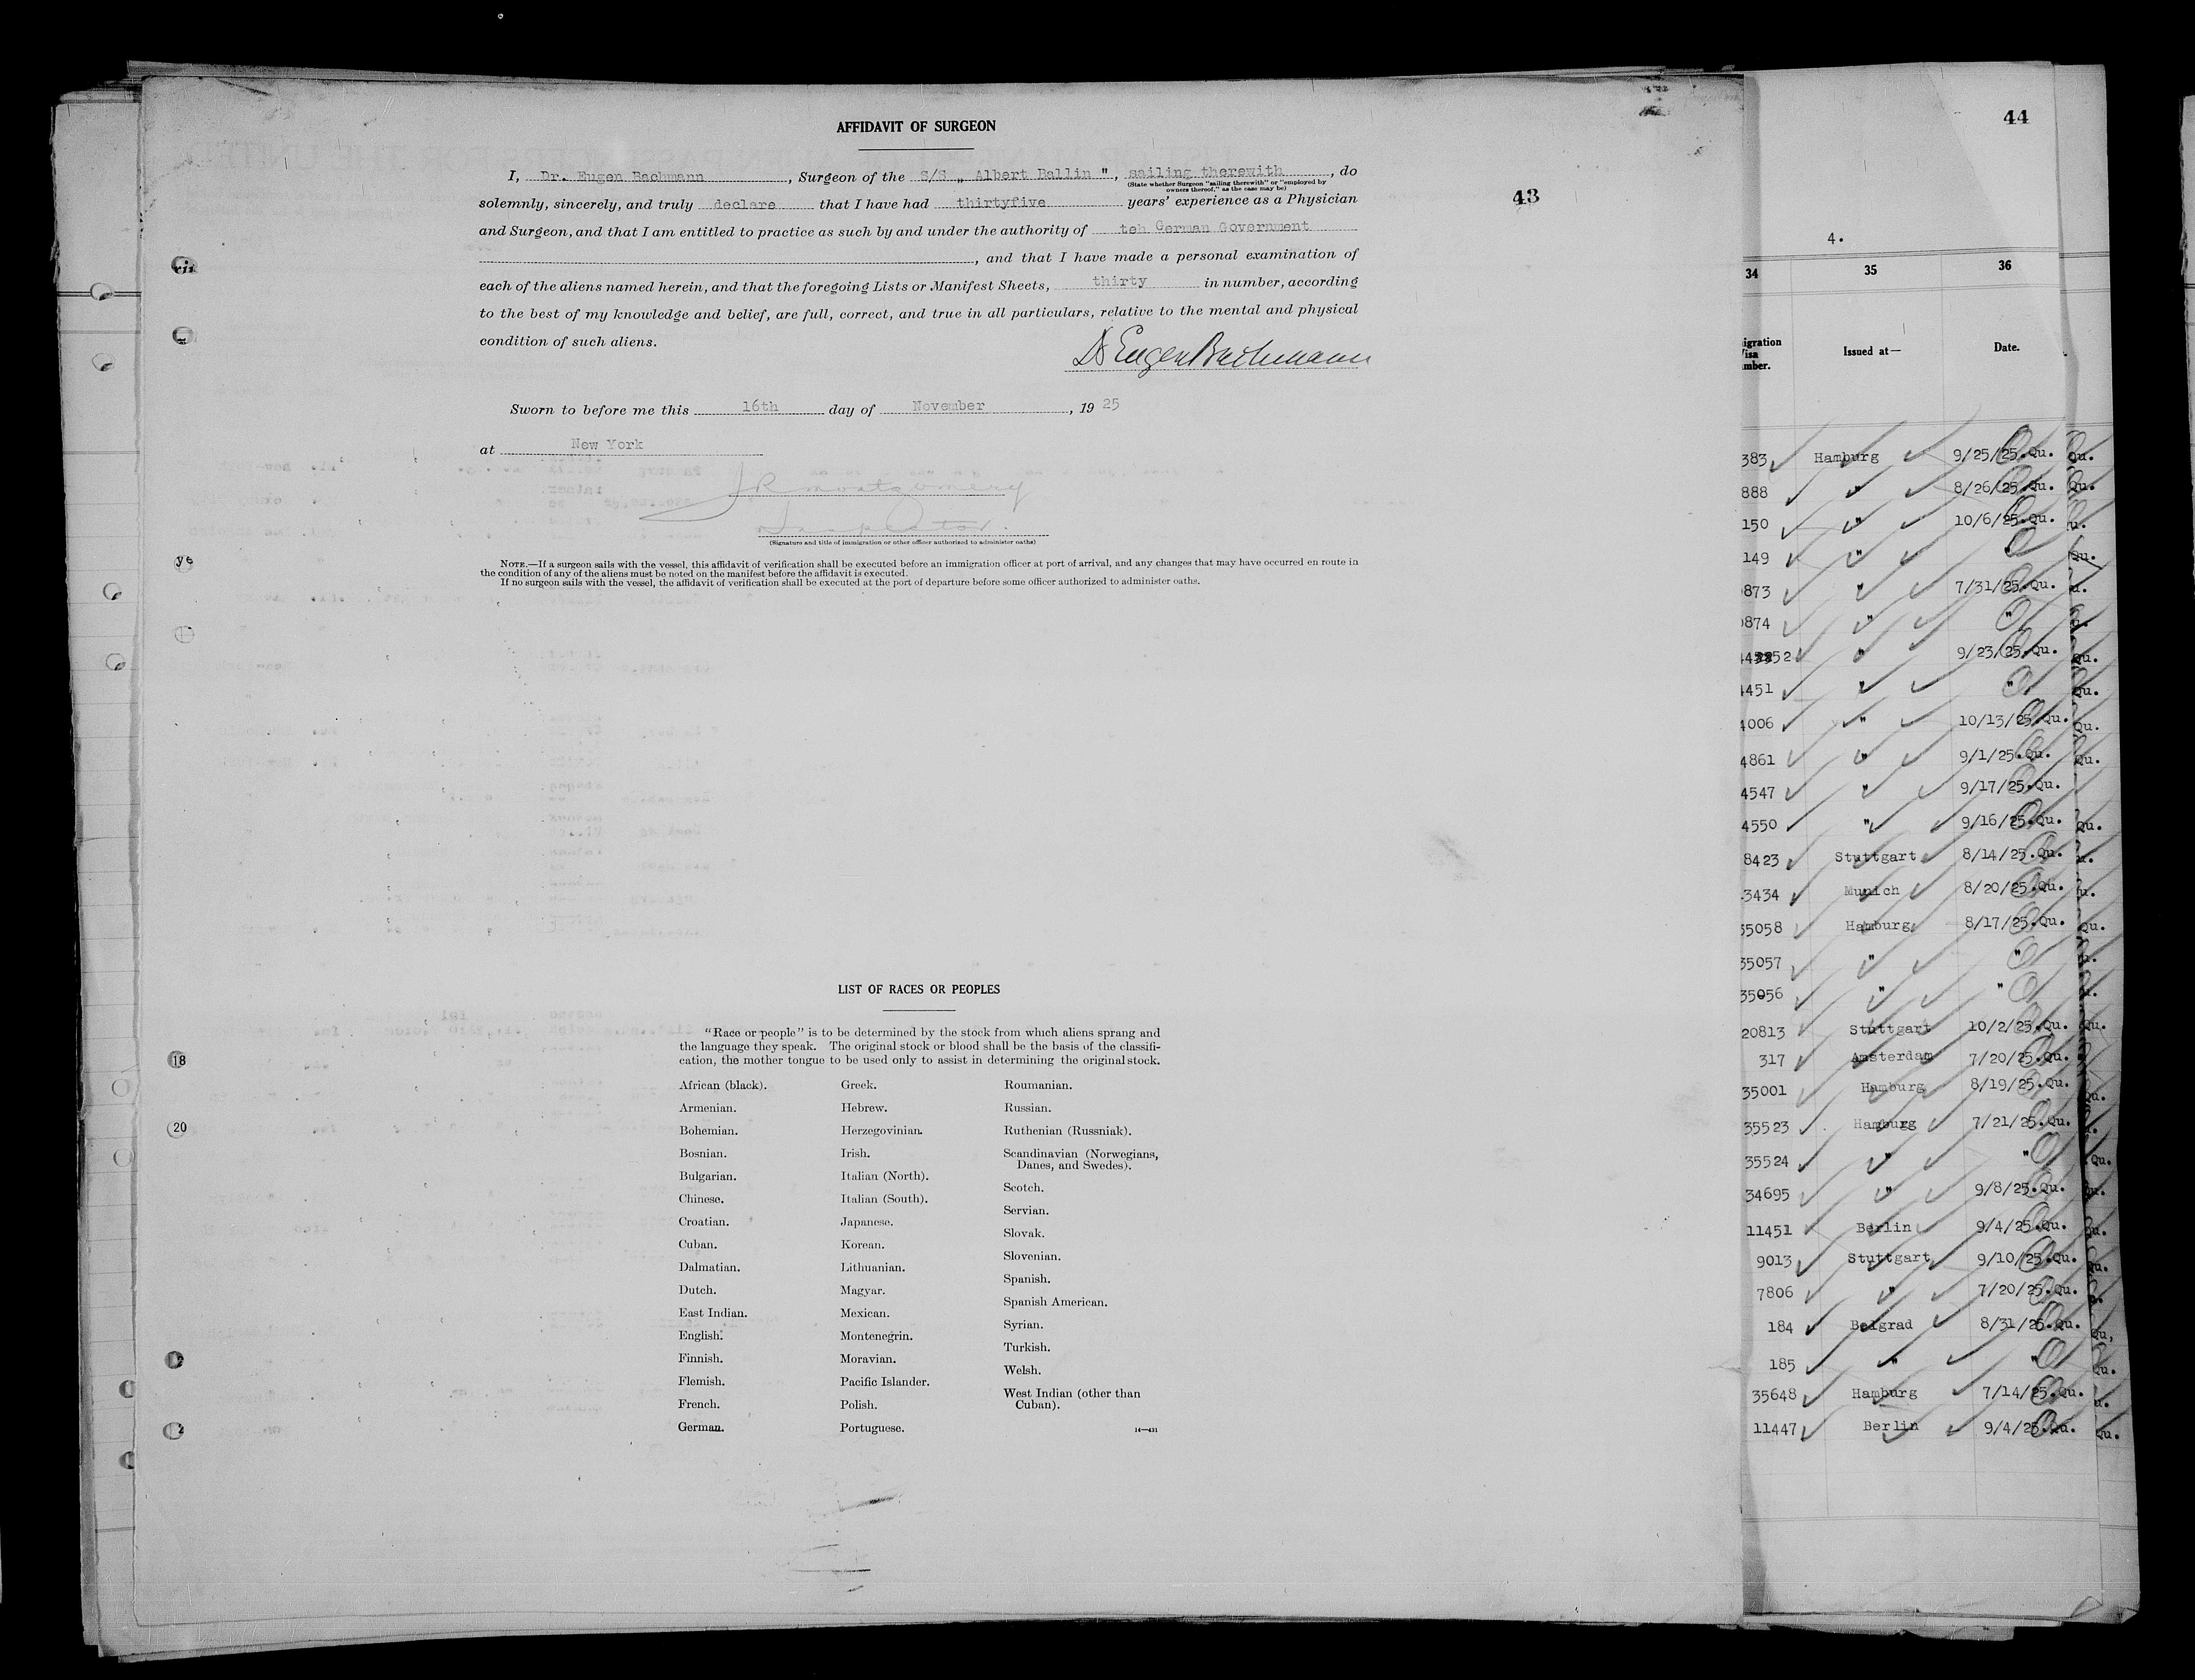 AFFIDAVIT OF SURGEON
I, Dr. Eugen Bachmann, Surgeon of the S/S „ Albert Ballin ", sailing therewith, do
(State whether Surgeon "sailing therewith" or "employed by
owners thereof," as the case may be)
solemnly, sincerely, and truly declare that I have had thirtyfive years' experience as a Physician
and Surgeon, and that I am entitled to practice as such by and under the authority of teh German Government
, and that I have made a personal examination of
each of the aliens named herein, and that the foregoing Lists or Manifest Sheets, thirty in number, according
to the best of my knowledge and belief, are full, correct, and true in all particulars, relative to the mental and physical
condition of such aliens.
Dr Eugen Bachmann
Sworn to before me this 16th day of November, 19 25
at New York
JR Montgomery
Inspector.
(Signature and title of immigration or other officer authorized to administer oaths)
NOTE.—If a surgeon sails with the vessel, this affidavit of verification shall be executed before an immigration officer at port of arrival, and any changes that may have occurred en route in
the condition of any of the aliens must be noted on the manifest before the affidavit is executed.
If no surgeon sails with the vessel, the affidavit of verification shall be executed at the port of departure before some officer authorized to administer oaths.
43
LIST OF RACES OR PEOPLES
"Race or people" is to be determined by the stock from which aliens sprang and
the language they speak. The original stock or blood shall be the basis of the classifi-
cation, the mother tongue to be used only to assist in determining the original stock.
African (black).
Armenian.
Bohemian.
Bosnian.
Bulgarian.
Chinese.
Croatian.
Cuban.
Dalmatian.
Dutch.
East Indian.
English.
Finnish.
Flemish.
French.
German.
Greek.
Hebrew.
Herzegovinian.
Irish.
Italian (North).
Italian (South).
Japanese.
Korean.
Lithuanian.
Magyar.
Mexican.
Montenegrin.
Moravian.
Pacific Islander.
Polish.
Portuguese.
Roumanian.
Russian.
Ruthenian (Russniak).
Scandinavian (Norwegians,
Danes, and Swedes).
Scotch.
Servian.
Slovak.
Slovenian.
Spanish.
Spanish American.
Syrian.
Turkish.
Welsh.
West Indian (other than
Cuban).
14—431
18
20
44
4.
34 35 36
Issued at— Date.
383 Hamburg 9/25/25.Qu.
888 " 8/26/25.Qu.
150 " 10/6/25.Qu.
149 " "
873 " 7/31/25.Qu.
874 " "
" 9/23/25.Qu.
4451 " "
4006 " 10/13/25.Qu.
4861 " 9/1/25.Qu.
4547 " 9/17/25.Qu.
4550 " 9/16/25.Qu.
8423 Stuttgart 8/14/25.Qu.
3434 Munich 8/20/25.Qu.
35058 Hamburg 8/17/25.Qu.
35057 " "
35056 " "
20813 Stuttgart 10/2/25.Qu.
317 Amsterdam 7/20/25.Qu.
35001 Hamburg 8/19/25.Qu.
35523 Hamburg 7/21/25.Qu.
35524 " "
34695 " 9/8/25.Qu.
11451 Berlin 9/4/25.Qu.
9013 Stuttgart 9/10/25.Qu.
7806 " 7/20/25.Qu.
184 Belgrad 8/31/25.Qu.
185 " "
35648 Hamburg 7/14/25.Qu.
11447 Berlin 9/4/25.Qu.